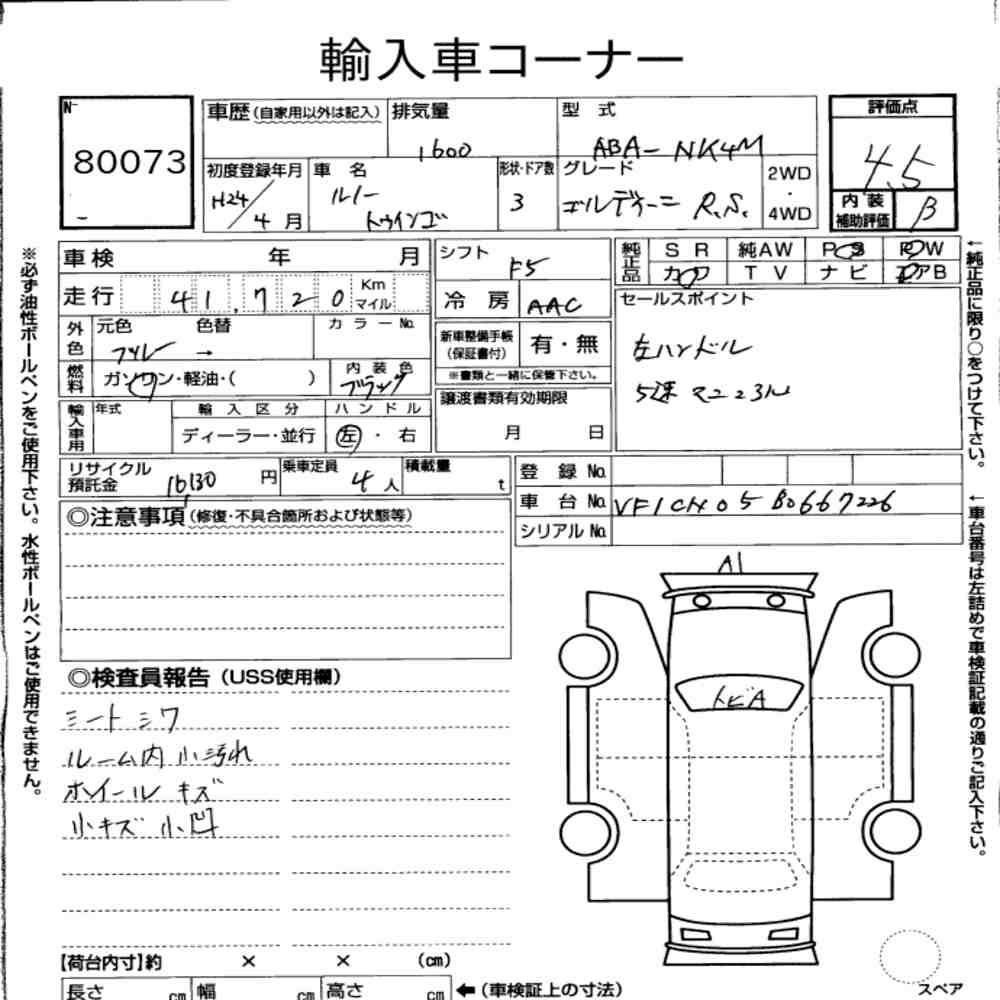 輸入車コーナー
№
80073
車歴(自家用以外は記入)
排気量
1600
型 式
ABA-NK4M
評価点
4.5
初度登録年月
H24/4月
車 名
ルノー
トゥインゴ
形状・ドア数
3
グレード
R.S.
2WD
・
4WD
内 装
補助評価
B
車検 年 月
走行 41,720 Km
マイル
シフト
F5
冷 房
AAC
純正品
S R 純AW P S P W
カワ T V ナビ エアB
外色
元色 色替 カラー№
ブルー →
燃料
ガソリン・軽油・( )
内 装 色
ブラック
新車整備手帳
(保証書付)
有・無
※書類と一緒に保管下さい。
セールスポイント
左ハンドル
5速マニュアル
輸入車用
年式
輸 入 区 分
ディーラー・並行
ハ ン ド ル
左 ・ 右
譲渡書類有効期限
月 日
リサイクル
預託金
16130円
乗車定員
4人
積載量
t
登 録 №
車 台 № VF1CN05B0667226
シリアル№
◎注意事項(修復・不具合箇所および状態等)
◎検査員報告(USS使用欄)
シートシワ
ルーム内小汚れ
ホイールキズ
小キズ 小凹
A1
トビA
スペア
【荷台内寸】約 × × (cm)
長さ cm 幅 cm 高さ cm ←(車検証上の寸法)
※必ず油性ボールペンをご使用下さい。水性ボールペンはご使用できません。
←純正品に限り○をつけて下さい。
←車台番号は左詰めで車検証記載の通りご記入下さい。